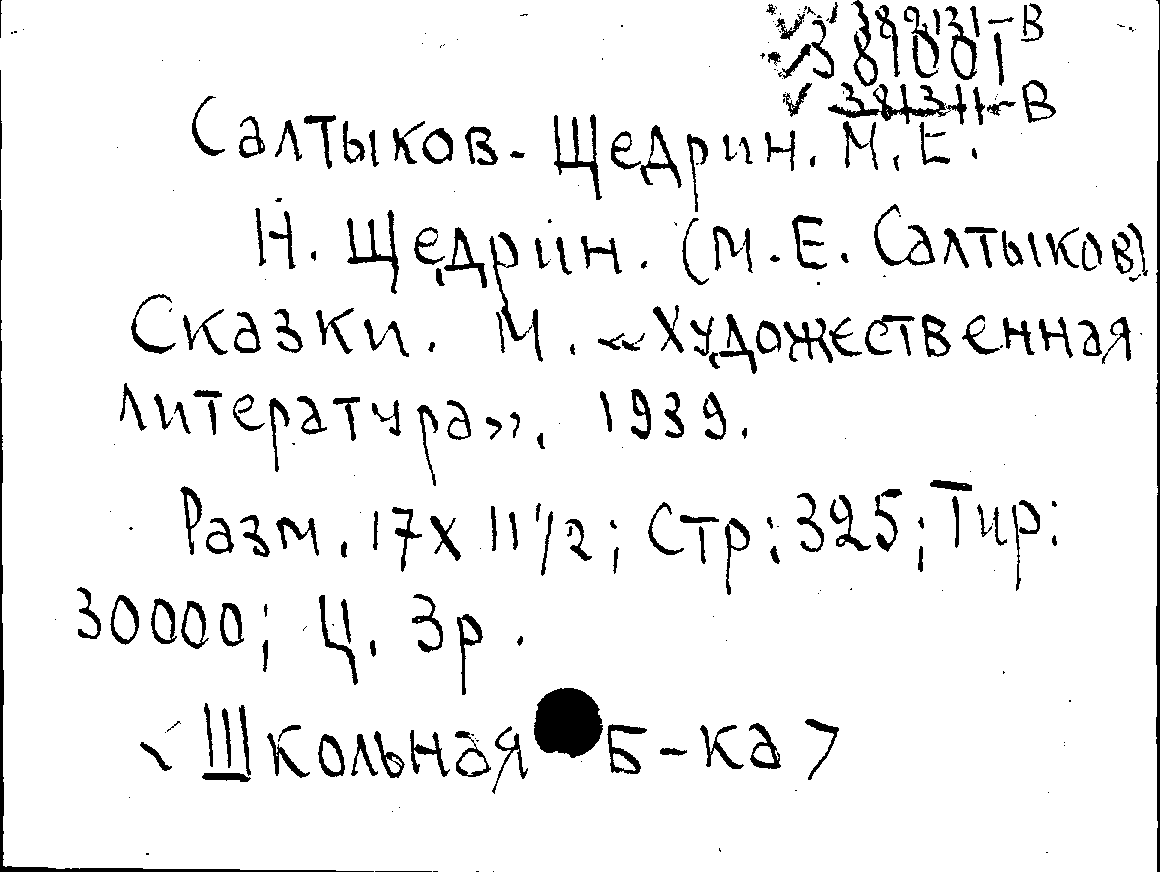 ✓✓ 382131-В
✓381001
✓ 381311-В
Салтыков-Щедрин. М.Е.
Н. Щедрин. (М.Е. Салтыков)
Сказки. М. «Художественная
литература». 1939.
Разм. 17х11 1/2; Стр: 325; Тир:
30000; Ц. 3р.
<Школьная Б-ка>